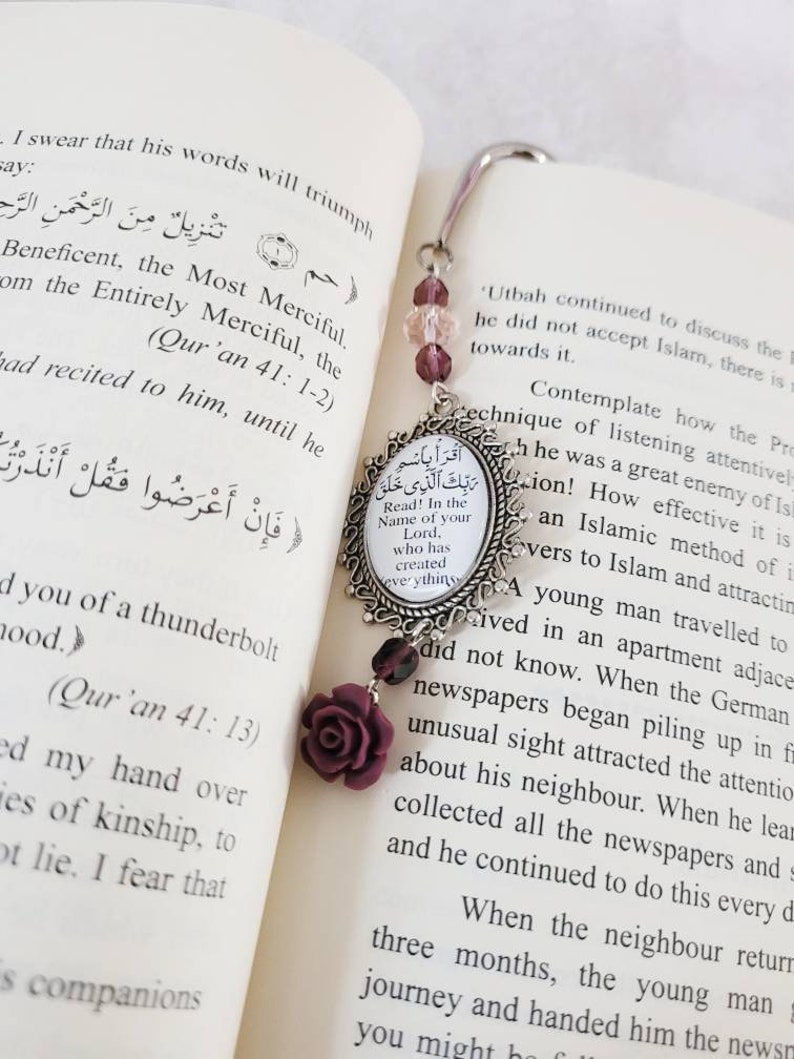 . I swear that his words will triumph
say:
حم ۝١ تَنْزِيلٌ مِنَ الرَّحْمَنِ
Beneficent, the Most Merciful.
from the Entirely Merciful, the
(Qur'an 41: 1-2)
had recited to him, until he
فَإِنْ أَعْرَضُوا فَقُلْ
you of a thunderbolt
(Qur'an 41: 13)
my hand over
of kinship, to
lie. I fear that
companions
أَقْرَأْ بِاسْمِ
رَبِّكَ ٱلَّذِي خَلَقَ
Read! In the
Name of your
Lord,
who has
created
everything
'Utbah continued to discuss the
he did not accept Islam, there is
towards it.
Contemplate how the
technique of listening
he was a great enemy of
How effective it is
an Islamic method of
to Islam and
A young man travelled to
lived in an apartment
did not know. When the German
newspapers began piling up in
unusual sight attracted the
about his neighbour. When he
collected all the newspapers and
and he continued to do this every
When the neighbour
three months, the young man
journey and handed him the
you might be